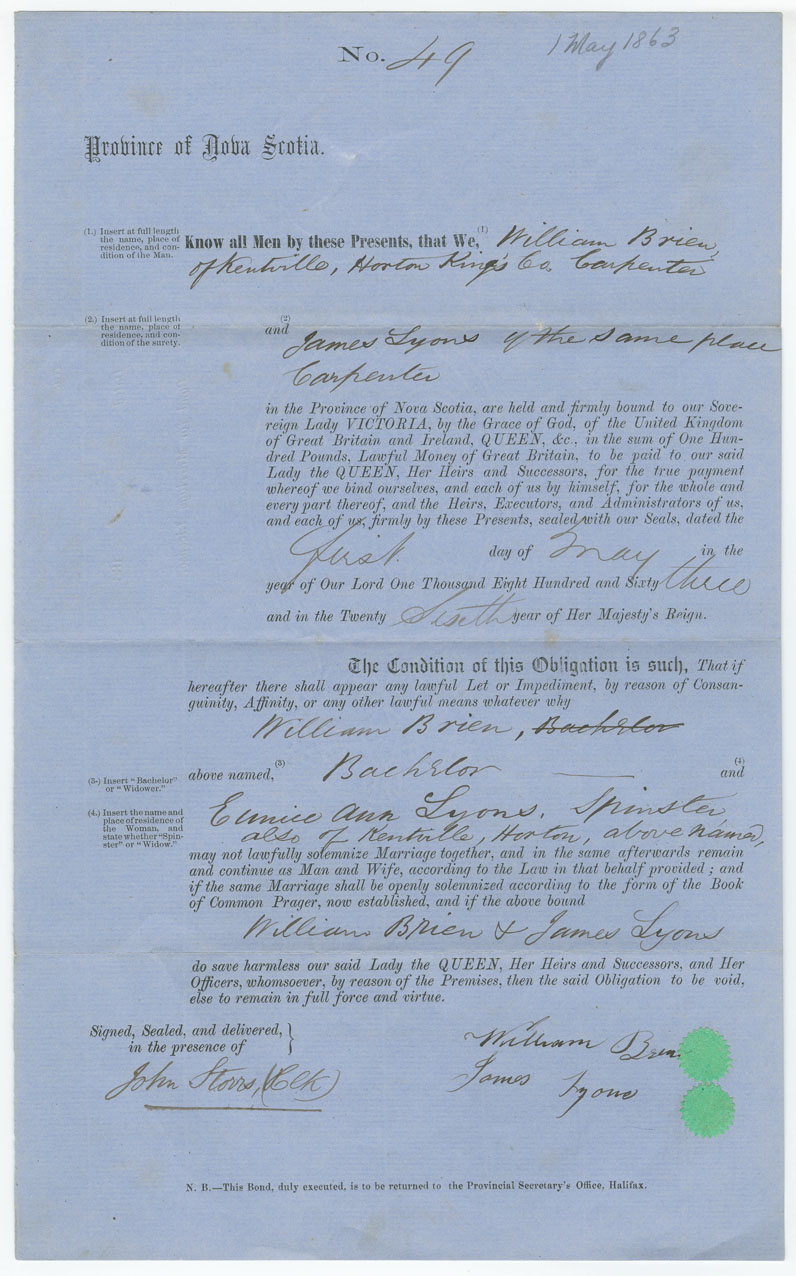 No. 49
1 May 1863
Province of Nova Scotia.
(1.) Insert at full length
the name, place of
residence, and con-
dition of the Man.
Know all Men by these Presents, that We, (1) William Brien,
of Kentville, Horton King's Co. Carpenter
(2.) Insert at full length
the name, place of
residence, and con-
dition of the surety.
(2)
and James Lyons of the same place
Carpenter
in the Province of Nova Scotia, are held and firmly bound to our Sove-
reign Lady VICTORIA, by the Grace of God, of the United Kingdom
of Great Britain and Ireland, QUEEN, &c., in the sum of One Hun-
dred Pounds, Lawful Money of Great Britain, to be paid to our said
Lady the QUEEN, Her Heirs and Successors, for the true payment
whereof we bind ourselves, and each of us by himself, for the whole and
every part thereof, and the Heirs, Executors, and Administrators of us,
and each of us, firmly by these Presents, sealed with our Seals, dated the
first day of May in the
year of Our Lord One Thousand Eight Hundred and Sixty three
and in the Twenty Sixth year of Her Majesty's Reign.
The Condition of this Obligation is such, That if
hereafter there shall appear any lawful Let or Impediment, by reason of Consan-
guinity, Affinity, or any other lawful means whatever why
William Brien, Bachelor
(3.) Insert "Bachelor"
or "Widower."
above named, (3) Bachelor and (4)
(4.) Insert the name and
place of residence of
the Woman, and
state whether "Spin-
ster" or "Widow."
Eunice Ann Lyons, Spinster,
also of Kentville, Horton, above named,
may not lawfully solemnize Marriage together, and in the same afterwards remain
and continue as Man and Wife, according to the Law in that behalf provided; and
if the same Marriage shall be openly solemnized according to the form of the Book
of Common Prager, now established, and if the above bound
William Brien & James Lyons
do save harmless our said Lady the QUEEN, Her Heirs and Successors, and Her
Officers, whomsoever, by reason of the Premises, then the said Obligation to be void,
else to remain in full force and virtue.
Signed, Sealed, and delivered,
in the presence of
John Storrs, (Clk)
William Brien
James Lyons
N. B.—This Bond, duly executed, is to be returned to the Provincial Secretary's Office, Halifax.